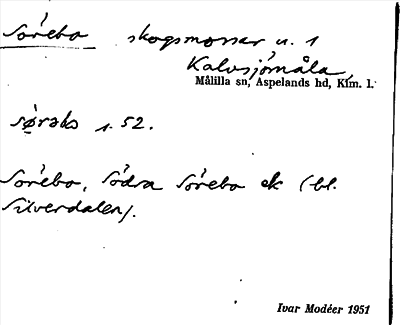 Sörebo skogsmossar u. 1
Kalvsjömåla,
Målilla sn, Aspelands hd, Klm. l.
1. 52.
Sörebo, Södra Sörebo ek (bl.
Silverdalen).
Ivar Modéer 1951